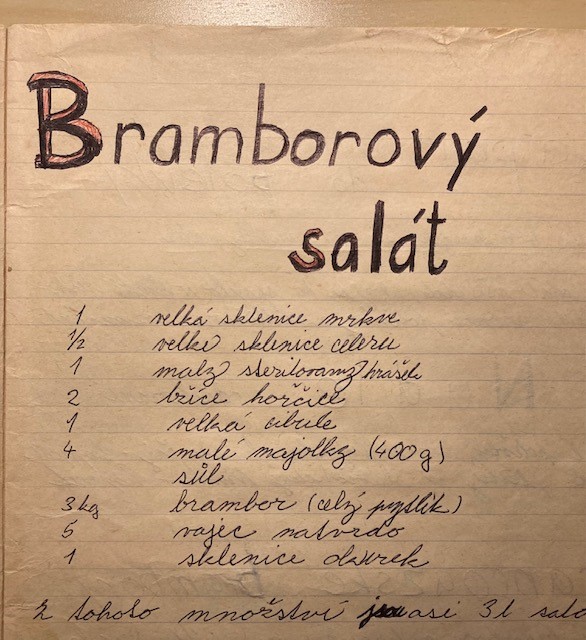 Bramborový
salát
1 velká sklenice mrkve
1/2 velké sklenice celeru
1 malý sterilovaný hrášek
2 lžíce hořčice
1 velká cibule
4 malé majolky (400g)
sůl
3 kg brambor (celý pytlík)
5 vajec natvrdo
1 sklenice okurek
z tohoto množství asi 3 l